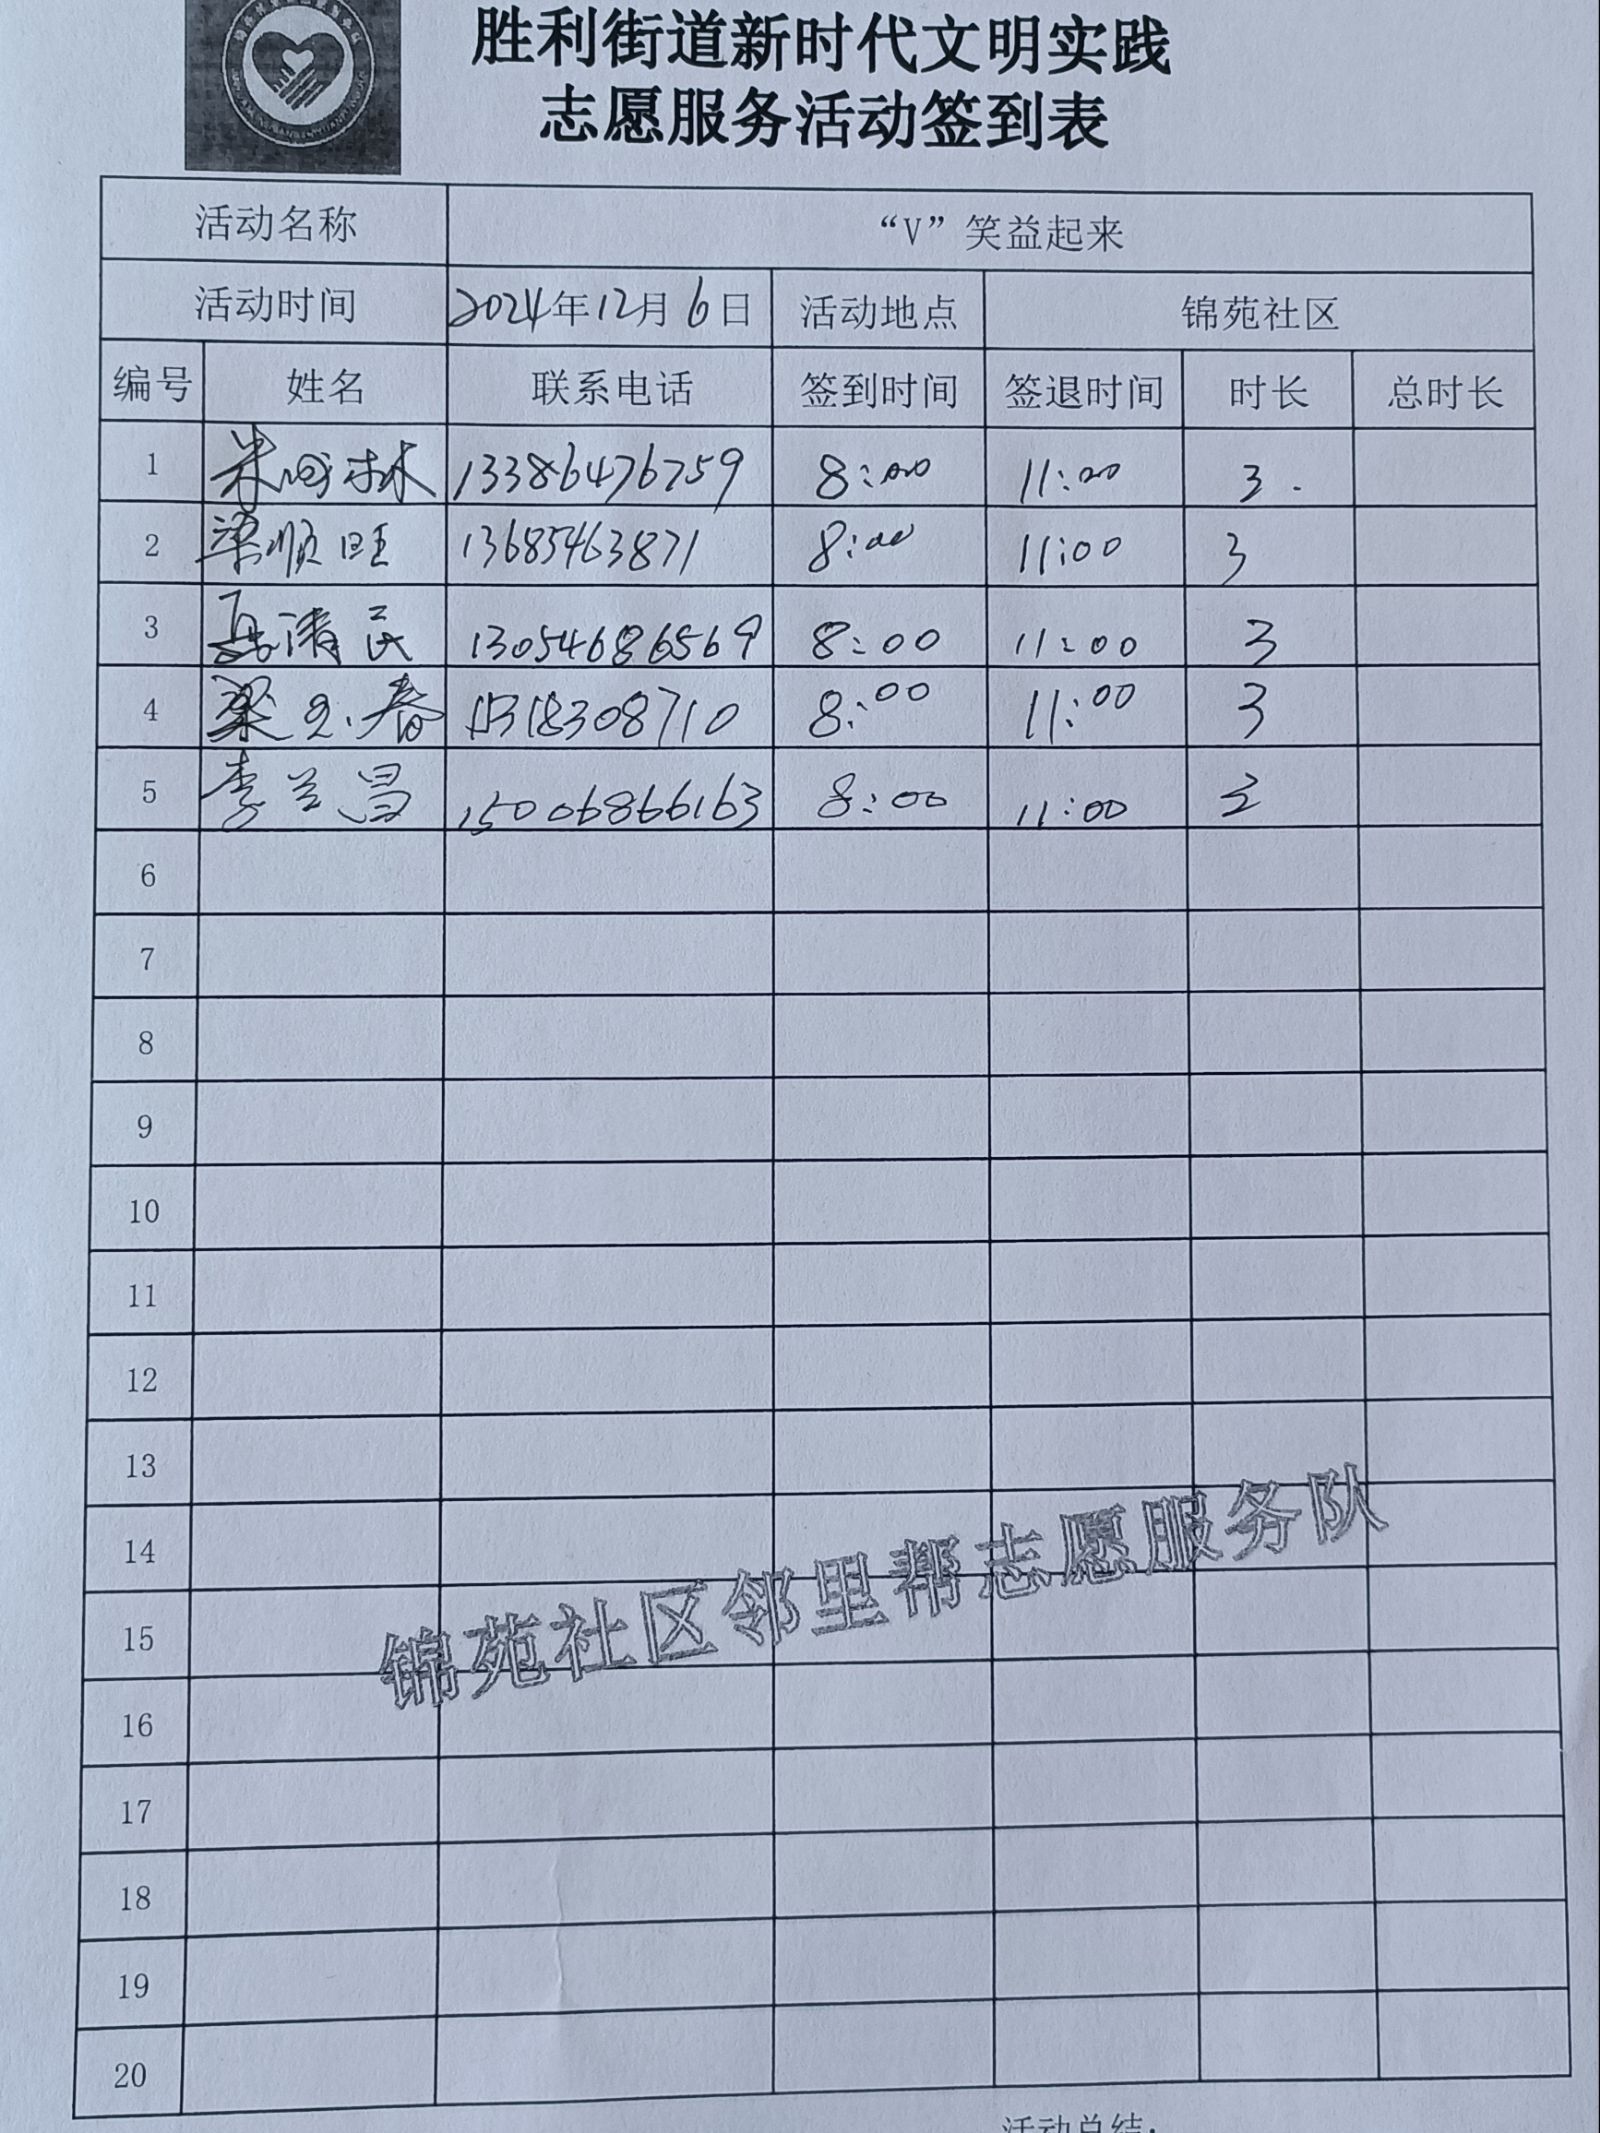 胜利街道新时代文明实践
志愿服务活动签到表
活动名称 “V”笑益起来
活动时间 2024年12月6日 活动地点 锦苑社区
编号 姓名 联系电话 签到时间 签退时间 时长 总时长
1 林 13386476759 8:00 11:00 3.
2 梁顺旺 13685463871 8:00 11:00 3
3 清民 13054686569 8:00 11:00 3
4 梁 春 8:00 11:00 3
5 李兰昌 15006866163 8:00 11:00 3
6
7
8
9
10
11
12
13
14
15
16
17
18
19
20
锦苑社区邻里帮志愿服务队
活动总结: